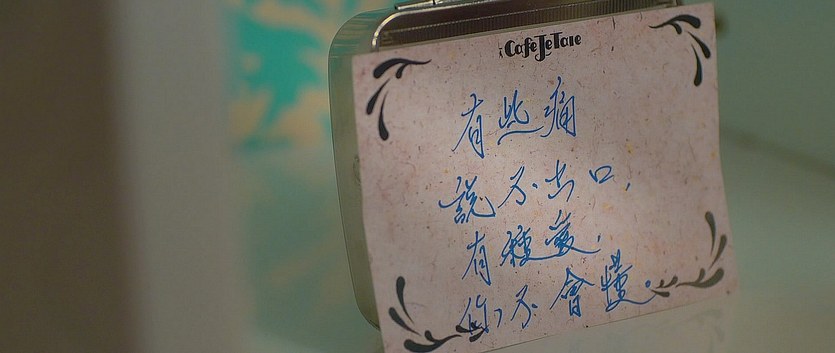 CafeJeTaie
有些痛
說不出口,
有種愛,
你不會懂。